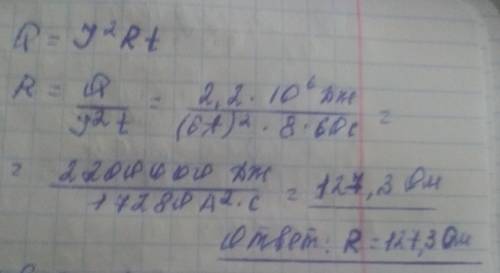 Q = I²Rt
R = Q/I²t = 2,2 · 10⁶ Дж/(6А)² · 8 · 60с =
= 2200000 Дж/17280 А² · с = 127,3 Ом
Ответ: R = 127,3 Ом